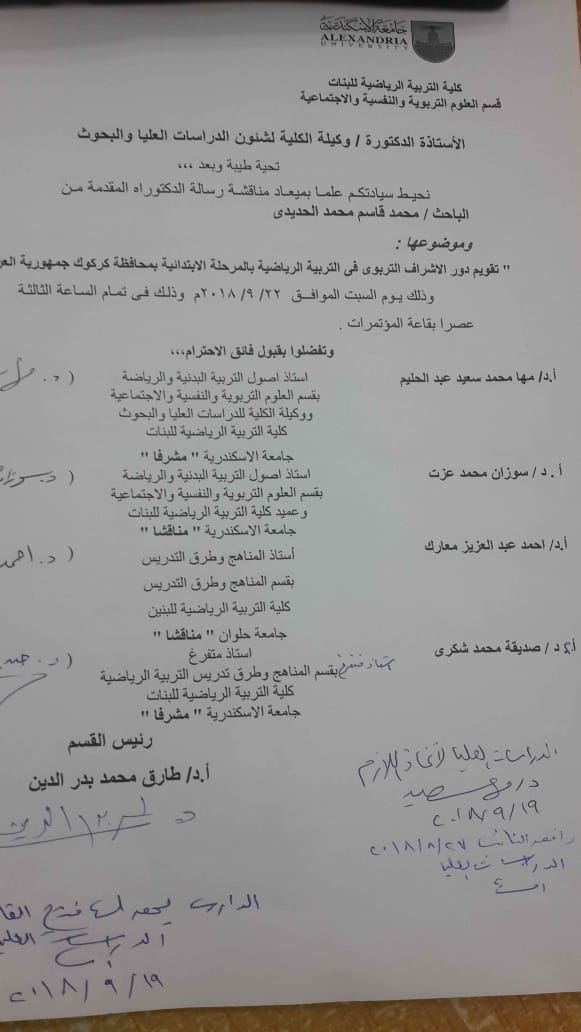 جامعة الإسكندرية
ALEXANDRIA
UNIVERSITY
كلية التربية الرياضية للبنات
قسم العلوم التربوية والنفسية والاجتماعية
الأستاذة الدكتورة / وكيلة الكلية لشئون الدراسات العليا والبحوث
تحية طيبة وبعد ،،،
نحيط سيادتكم علما بميعاد مناقشة رسالة الدكتوراه المقدمة من
الباحث / محمد قاسم محمد الحديدى
وموضوعها :
" تقويم دور الاشراف التربوى فى التربية الرياضية بالمرحلة الابتدائية بمحافظة كركوك جمهورية
وذلك يوم السبت الموافق ٢٢ /٩ /٢٠١٨م وذلك فى تمام الساعة الثالثة
عصرا بقاعة المؤتمرات .
وتفضلوا بقبول فائق الاحترام،،،
أ.د/ مها محمد سعيد عبد الحليم
استاذ اصول التربية البدنية والرياضة
بقسم العلوم التربوية والنفسية والاجتماعية
ووكيلة الكلية للدراسات العليا والبحوث
كلية التربية الرياضية للبنات
جامعة الاسكندرية " مشرفا "
أ . د / سوزان محمد عزت
استاذ اصول التربية البدنية والرياضة
بقسم العلوم التربوية والنفسية والاجتماعية
وعميد كلية التربية الرياضية للبنات
جامعة الاسكندرية " مناقشا "
أ.د/ احمد عبد العزيز معارك
أستاذ المناهج وطرق التدريس
بقسم المناهج وطرق التدريس
كلية التربية الرياضية للبنين
جامعة حلوان " مناقشا "
د / صديقة محمد شكرى
استاذ متفرغ
بقسم المناهج وطرق تدريس التربية الرياضية
كلية التربية الرياضية للبنات
جامعة الاسكندرية " مشرفا "
رئيس القسم
أ.د/ طارق محمد بدر الدين
الدراسات العليا لاتخاذ اللازم
٢٠١٨/٩/١٩
٢٠١٨/٨/٢٧
الدراسات العليا
٢٠١٨/٩/١٩